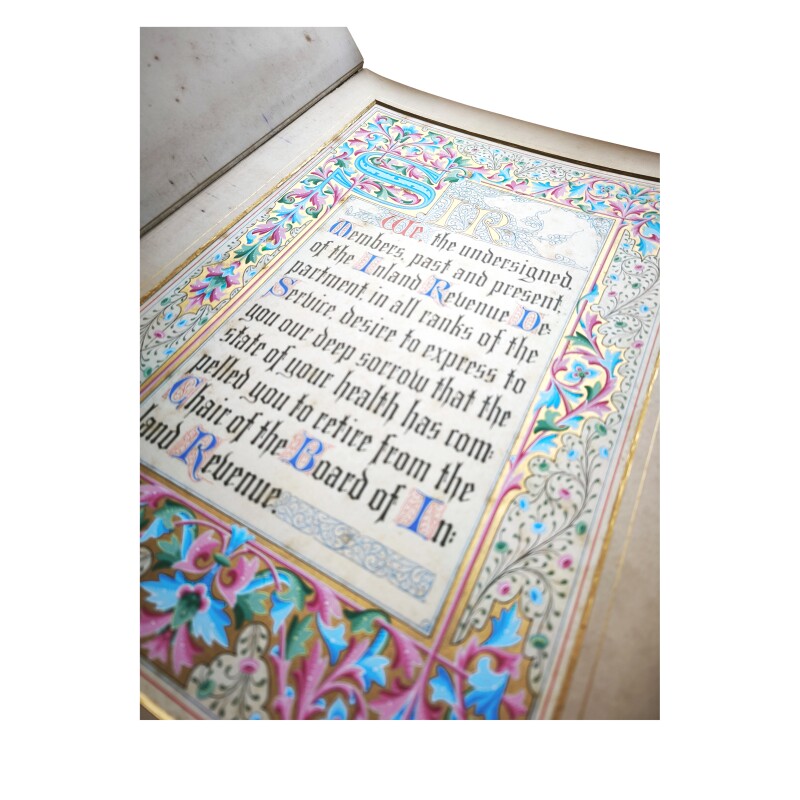 SIR
We, the undersigned,
Members, past and present
of the Inland Revenue De-
partment, in all ranks of the
Service, desire to express to
you our deep sorrow that the
state of your health has com-
pelled you to retire from the
Chair of the Board of In-
land Revenue.